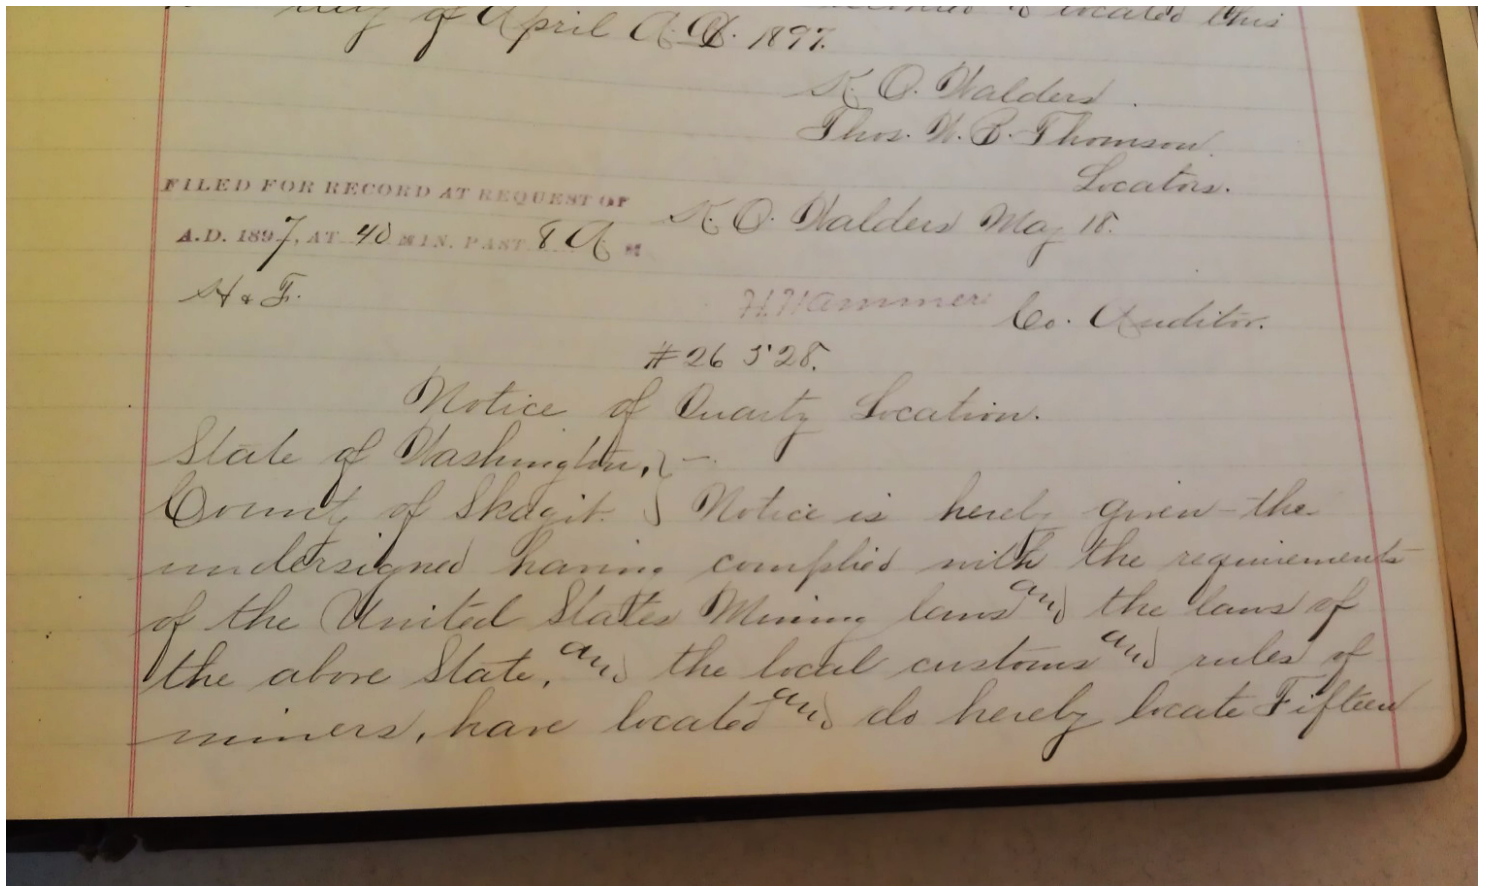 day of April A.D. 1897.
K. O. Walders.
Thos. W. B. Thomson.
Locators.
FILED FOR RECORD AT REQUEST OF K. O. Walders May 18.
A.D. 1897, AT 40 MIN. PAST 8 A M
H & F.
H. Hammer Co. Auditor.
#26528.
Notice of Quartz Location.
State of Washington, } —
County of Skagit. } Notice is hereby given the
undersigned having complied with the requirements
of the United States Mining laws and the laws of
the above State, and the local customs and rules of
miners, have located and do hereby locate Fifteen